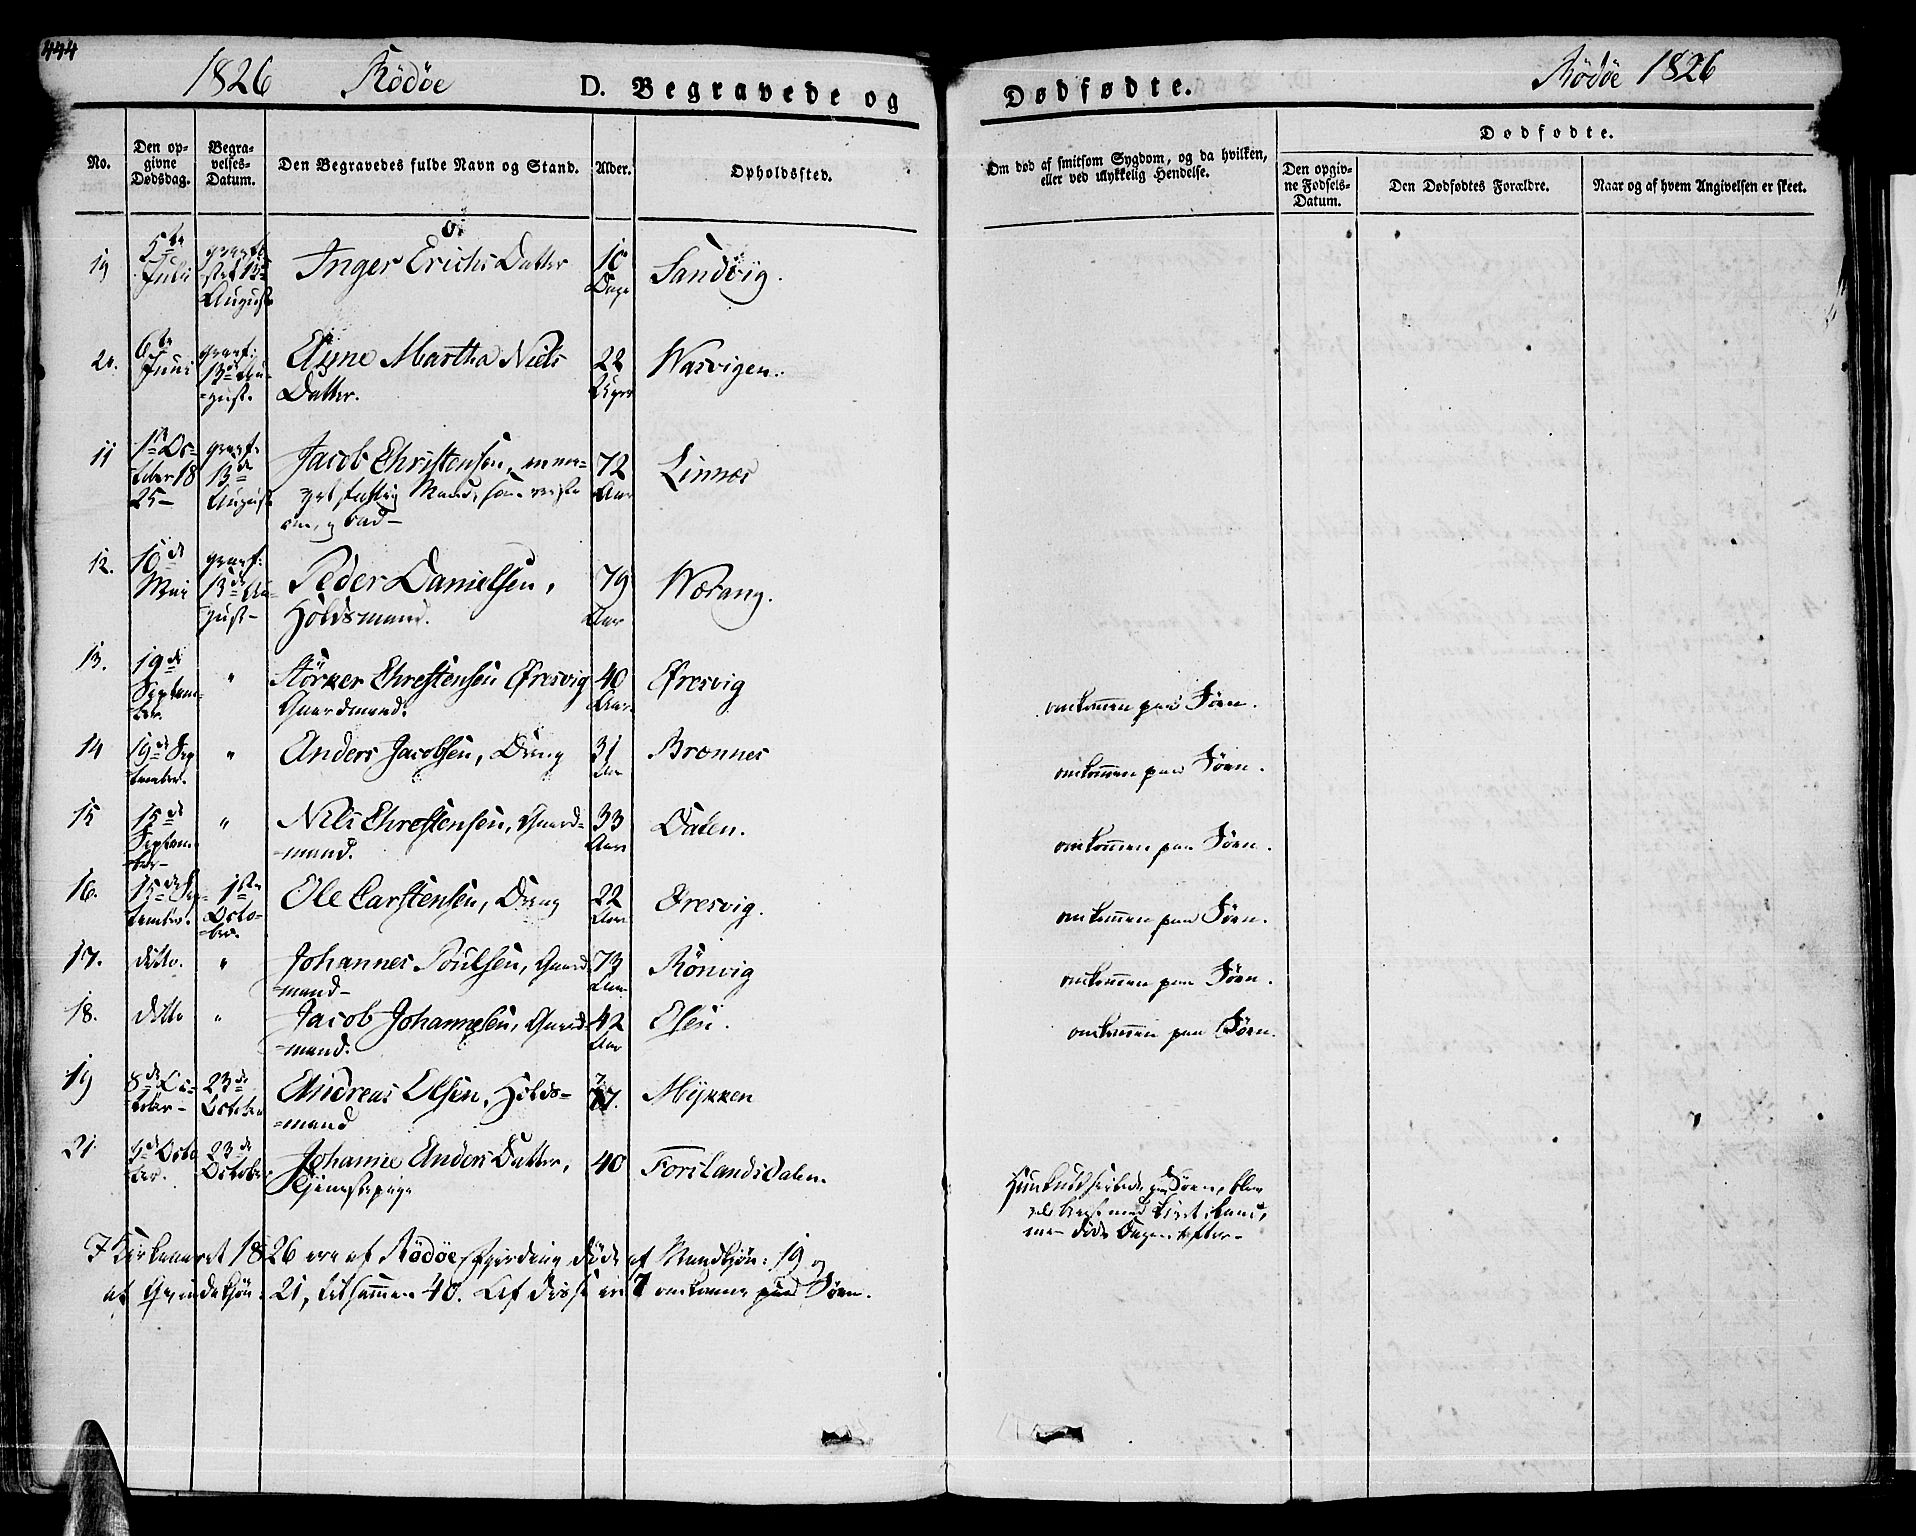 444
1826 Rödöe D. Begravede og Dødfødte. Rödöe 1826
No.
Den op-
givne
Dødsdag.
Begra-
velses-
Datum.
Den Begravedes fulde Navn og Stand.
Alder.
Opholdssted.
Om død af smitsom Sygdom, og da hvilken,
eller ved ulykkelig Hendelse.
Dødfødte.
Den opgiv-
ne Fødsels-
Datum.
Den Dødfødtes Forældre.
Naar og af hvem Angivelsen er skeet.
19 5te Juli August Inger Erichs Datter 10 Dage Sandvig.
20. 6te Juni 13de August. Martha Niels
Datter. 22 Uger
11 1ste October 1825 13de August Jacob Christensen, 72 Aar Linnæs
Mand, som
12. 16de Mai 13de August Peder Danielsen, 79 Aar Wærang.
Holdsmand.
13. 19de September " Störker Chrestensen Øresvig 40 Aar Øresvig omkommen paa Söen.
Gaardmand.
14 19de September " Anders Jacobsen, Dreng 31 Aar Brænnes omkommen paa Söen.
15 15de September " Nils Chrestensen, Gaard=
=mand. 33 Aar Dalen. omkommen paa Söen.
16. 15de September. 1ste October. Ole Carstensen, Dreng 22 Aar Øresvig. omkommen paa Söen.
17. ditto. " Johannes Poulsen, Gaard
=mand 73 Aar Rönvig omkommen paa Söen.
18. ditto " Jacob Johannesen, Gaard
=mand. 42 Aar omkommen paa Söen.
19 8de October 23de October Andreas Olsen, Holds=
=mand 77. Mykken
21. 9de October. 23de October Johanne Anders Datter,
Tjenestepige 40 Forslandsdalen.
paa Söen, blev
med Livet i Land,
men døde Dagen efter
I Kirkeaaret 1826 ere af Rödöe Fjerding døde af Mandkjön: 19 og
af Qvindekjön: 21, tilsammen 40. Af disse ere 7 omkomne paa Söen.